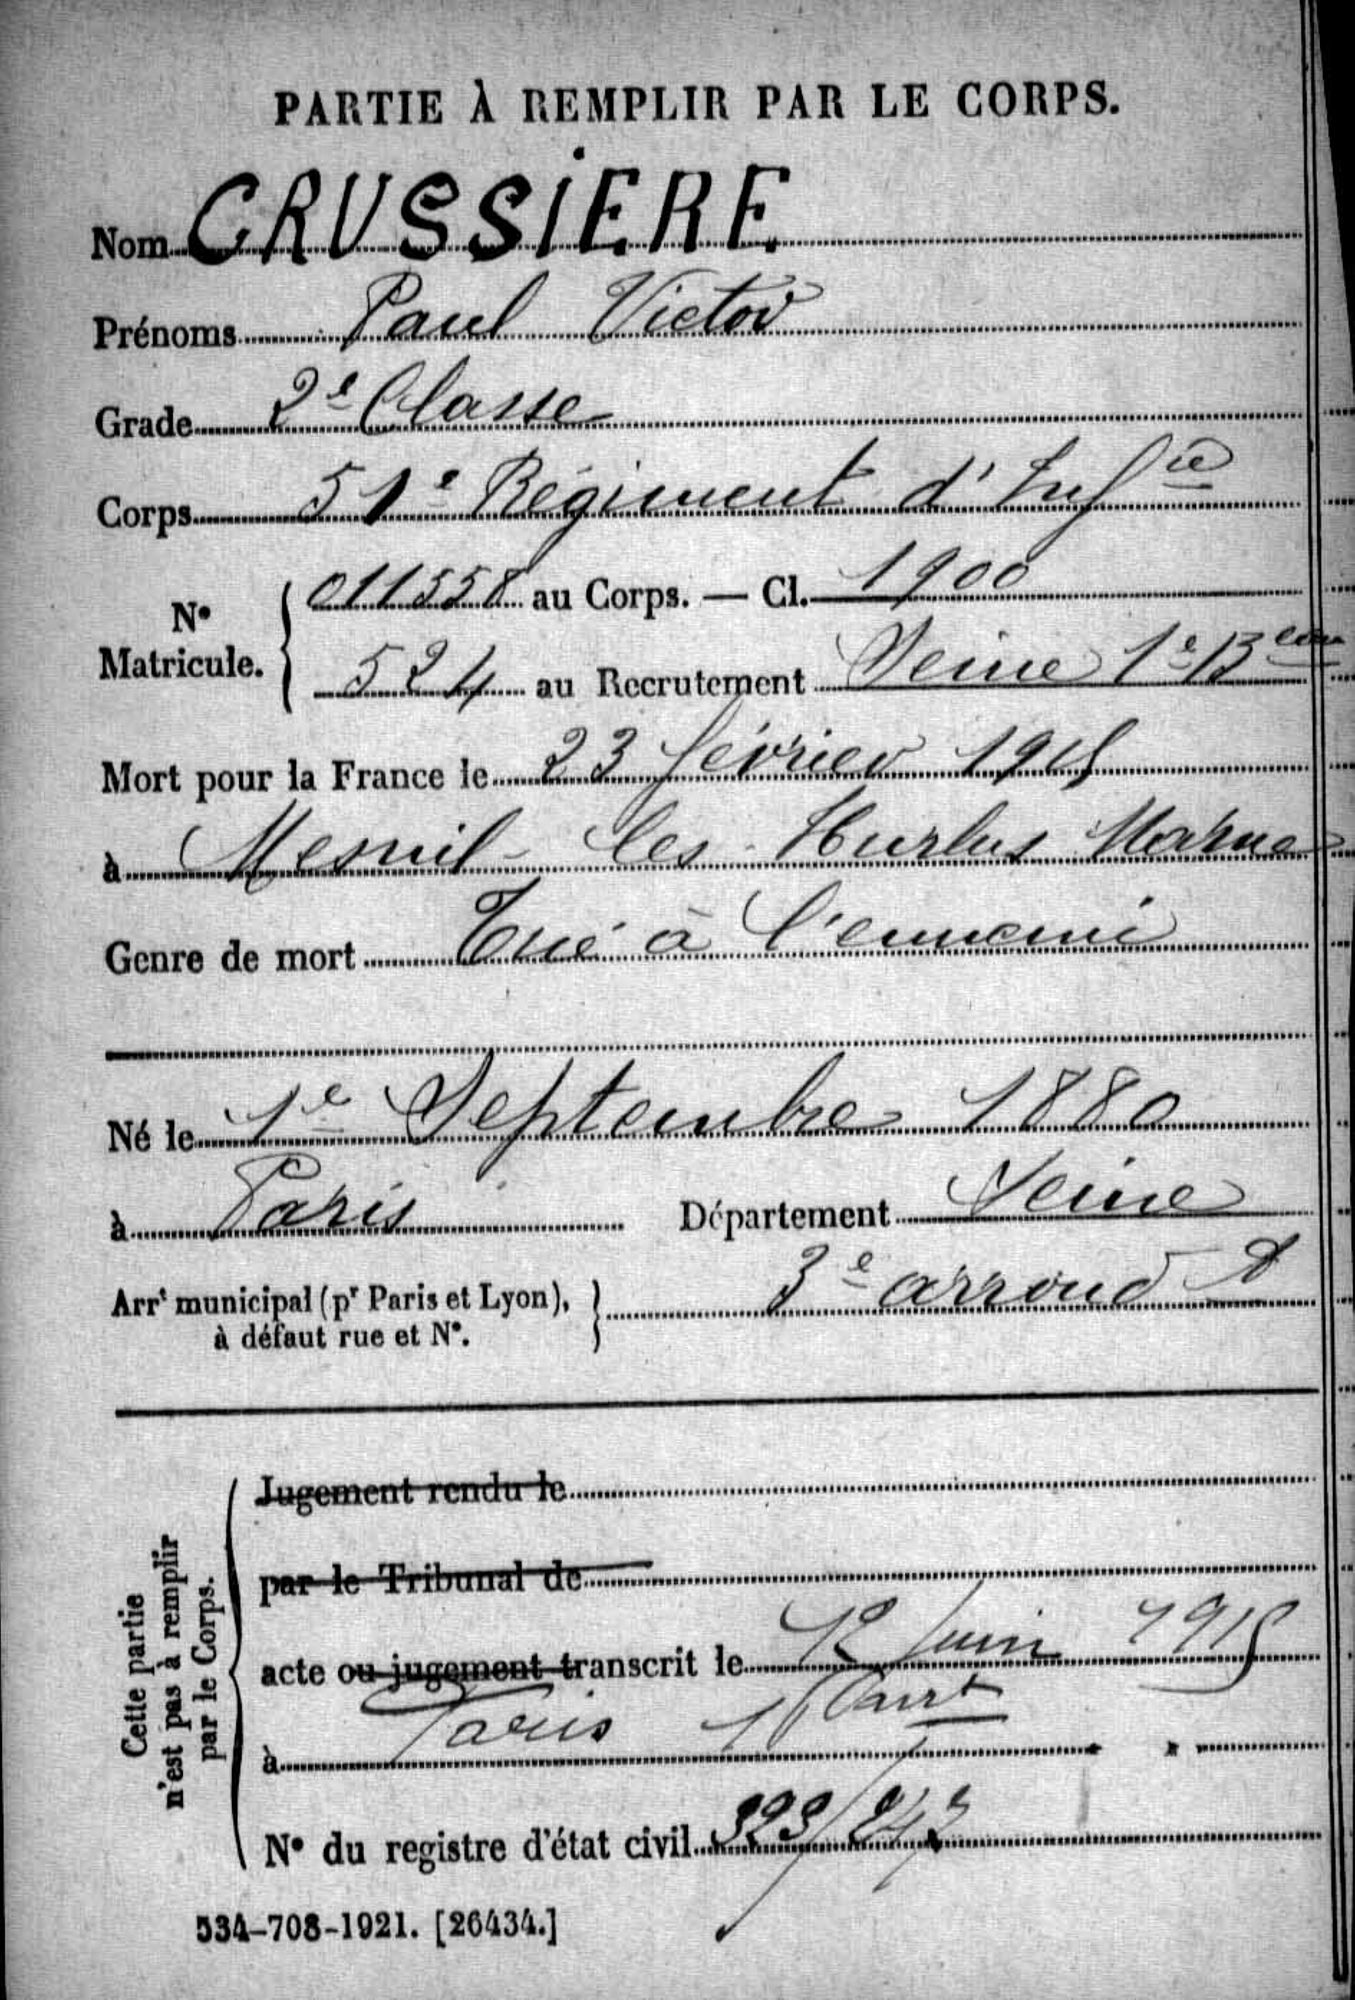 PARTIE À REMPLIR PAR LE CORPS.
Nom CRUSSIERE
Prénoms Paul Victor
Grade 2e Classe
Corps 51e Régiment d'Infie
N° Matricule. 011558 au Corps. — Cl. 1900
524 au Recrutement Seine 1e Beau
Mort pour la France le 23 février 1915
à Mesnil-les-Hurlus Marne
Genre de mort Tué à l'ennemi
Né le 1e Septembre 1880
à Paris Département Seine
Arrt municipal (pr Paris et Lyon), 3e arrond t
à défaut rue et N°.
Cette partie
n'est pas à remplir
par le Corps.
Jugement rendu le
par le Tribunal de
acte ou jugement transcrit le 12 Juin 1915
à Paris arrt
N° du registre d'état civil
534-708-1921. [26434.]